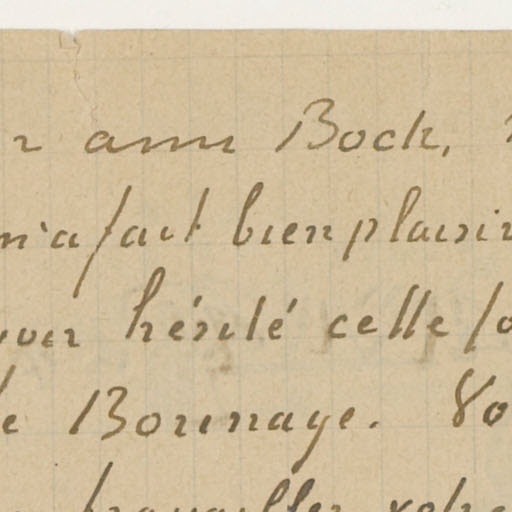 ami Boch,
m'a fait bien plaisir
hésité cette fo
le Borinage. Vo
travailler votre